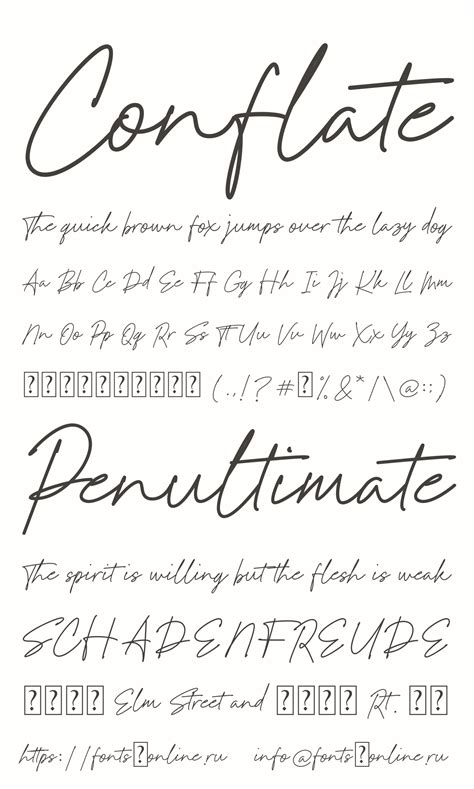 Conflate
The quick brown fox jumps over the lazy dog
Aa Bb Cc Dd Ee Ff Gg Hh Ii Jj Kk Ll Mm
Nn Oo Pp Qq Rr Ss Tt Uu Vv Ww Xx Yy Zz
⍰⍰⍰⍰⍰⍰⍰⍰⍰⍰ (.,!?#⍰%&*/\@:;)
Penultimate
The spirit is willing but the flesh is weak
SCHADENFREUDE
⍰⍰⍰⍰ Elm Street and ⍰⍰⍰⍰ Rt. ⍰⍰
https://fonts⍰online.ru info@fonts⍰online.ru